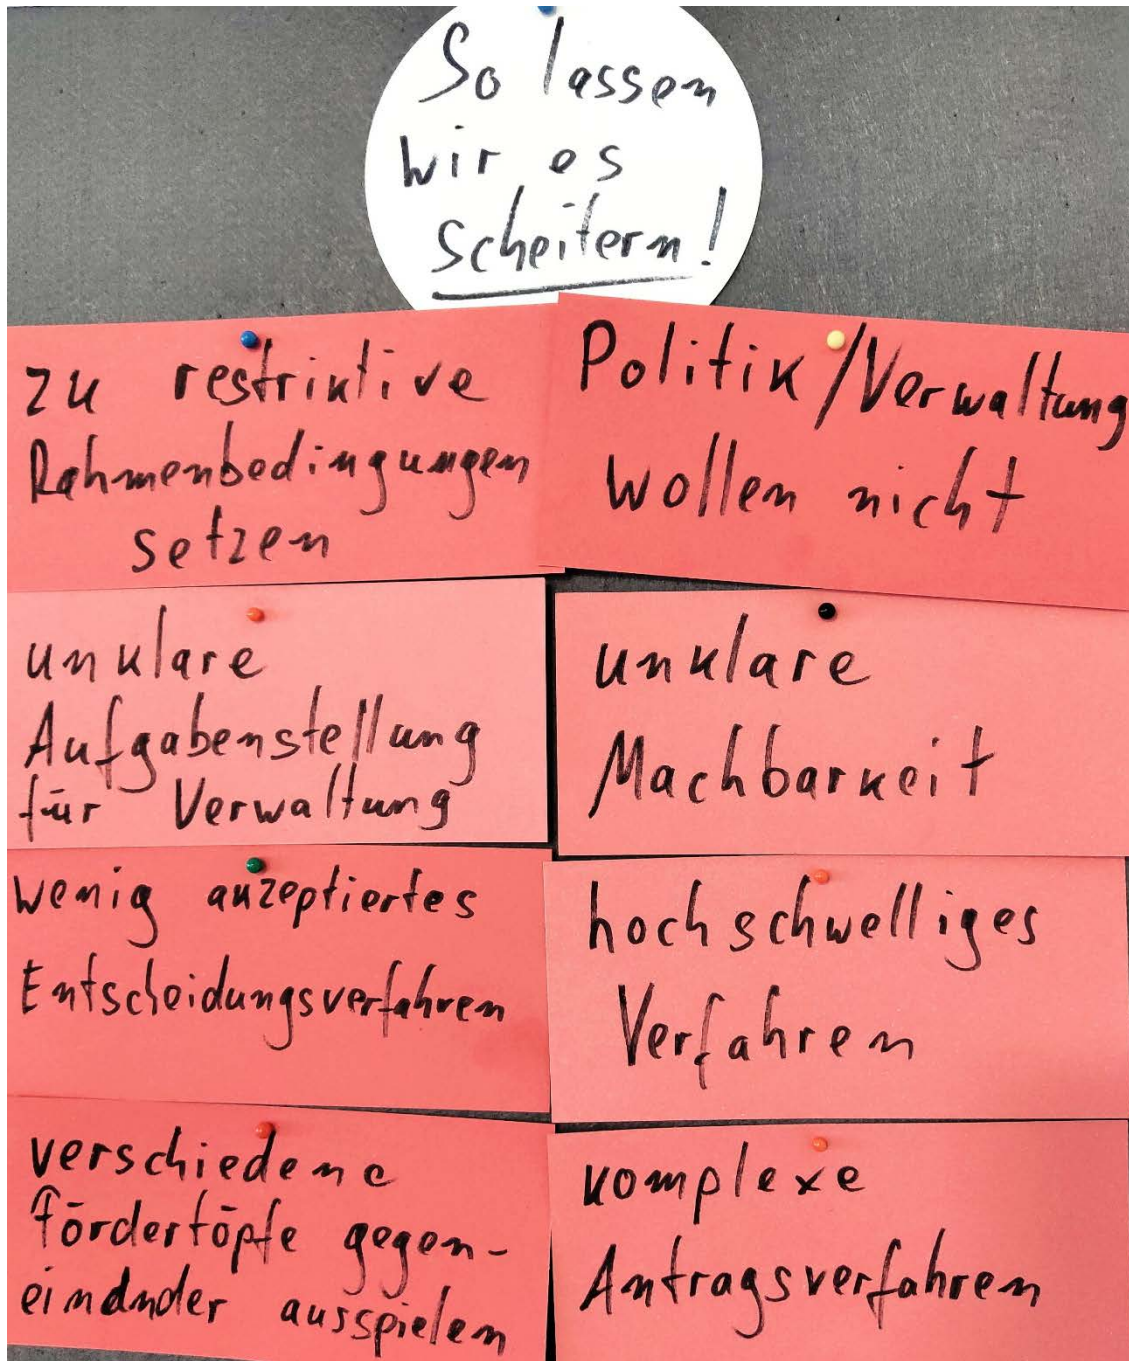 So lassen
wir es
scheitern!
zu restriktive
Rahmenbedingungen
setzen
Politik/Verwaltung
wollen nicht
unklare
Aufgabenstellung
für Verwaltung
unklare
Machbarkeit
wenig akzeptiertes
Entscheidungsverfahren
hochschwelliges
Verfahren
verschiedene
Fördertöpfe gegen-
einander ausspielen
komplexe
Antragsverfahren